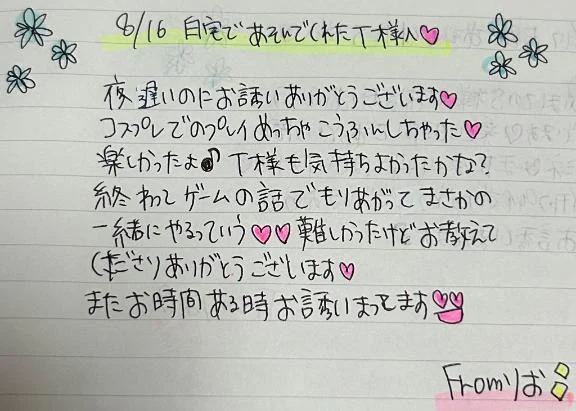 8/16 自宅であそんでくれたT様へ♡
夜遅いのにお誘いありがとうございます♡
コスプレでのプレイめっちゃこうふんしちゃった♡
楽しかったよ♪ T様も気持ちよかったかな?
終わってゲームの話でもりあがってまさかの
一緒にやるっていう♡♡難しかったけどお教えて
くださりありがとうございます♡
またお時間ある時お誘いまってます♡♡
Fromりお